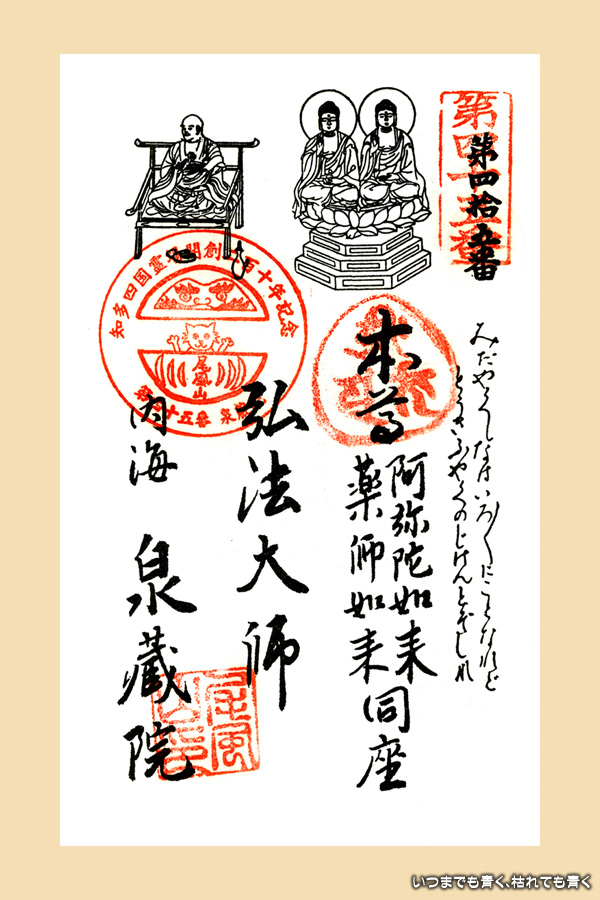 第四十五番
第四拾五番
みだやくしなはいろ〱にことなれど
ときふやくのじけんとぞしれ
本尊
阿弥陀如来
薬師如来
同座
弘法大師
内海 泉蔵院
知多四国霊場開創二百十年記念
尾風山
いつまでも青く、枯れても青く